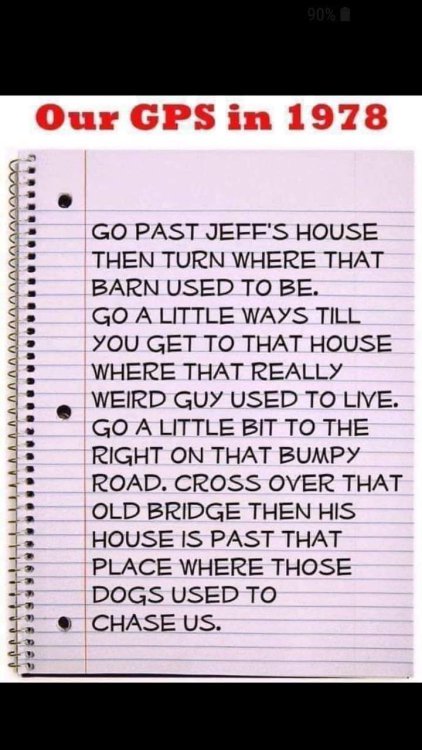 90%
Our GPS in 1978
GO PAST JEFF'S HOUSE
THEN TURN WHERE THAT
BARN USED TO BE.
GO A LITTLE WAYS TILL
YOU GET TO THAT HOUSE
WHERE THAT REALLY
WEIRD GUY USED TO LIVE.
GO A LITTLE BIT TO THE
RIGHT ON THAT BUMPY
ROAD. CROSS OVER THAT
OLD BRIDGE THEN HIS
HOUSE IS PAST THAT
PLACE WHERE THOSE
DOGS USED TO
CHASE US.